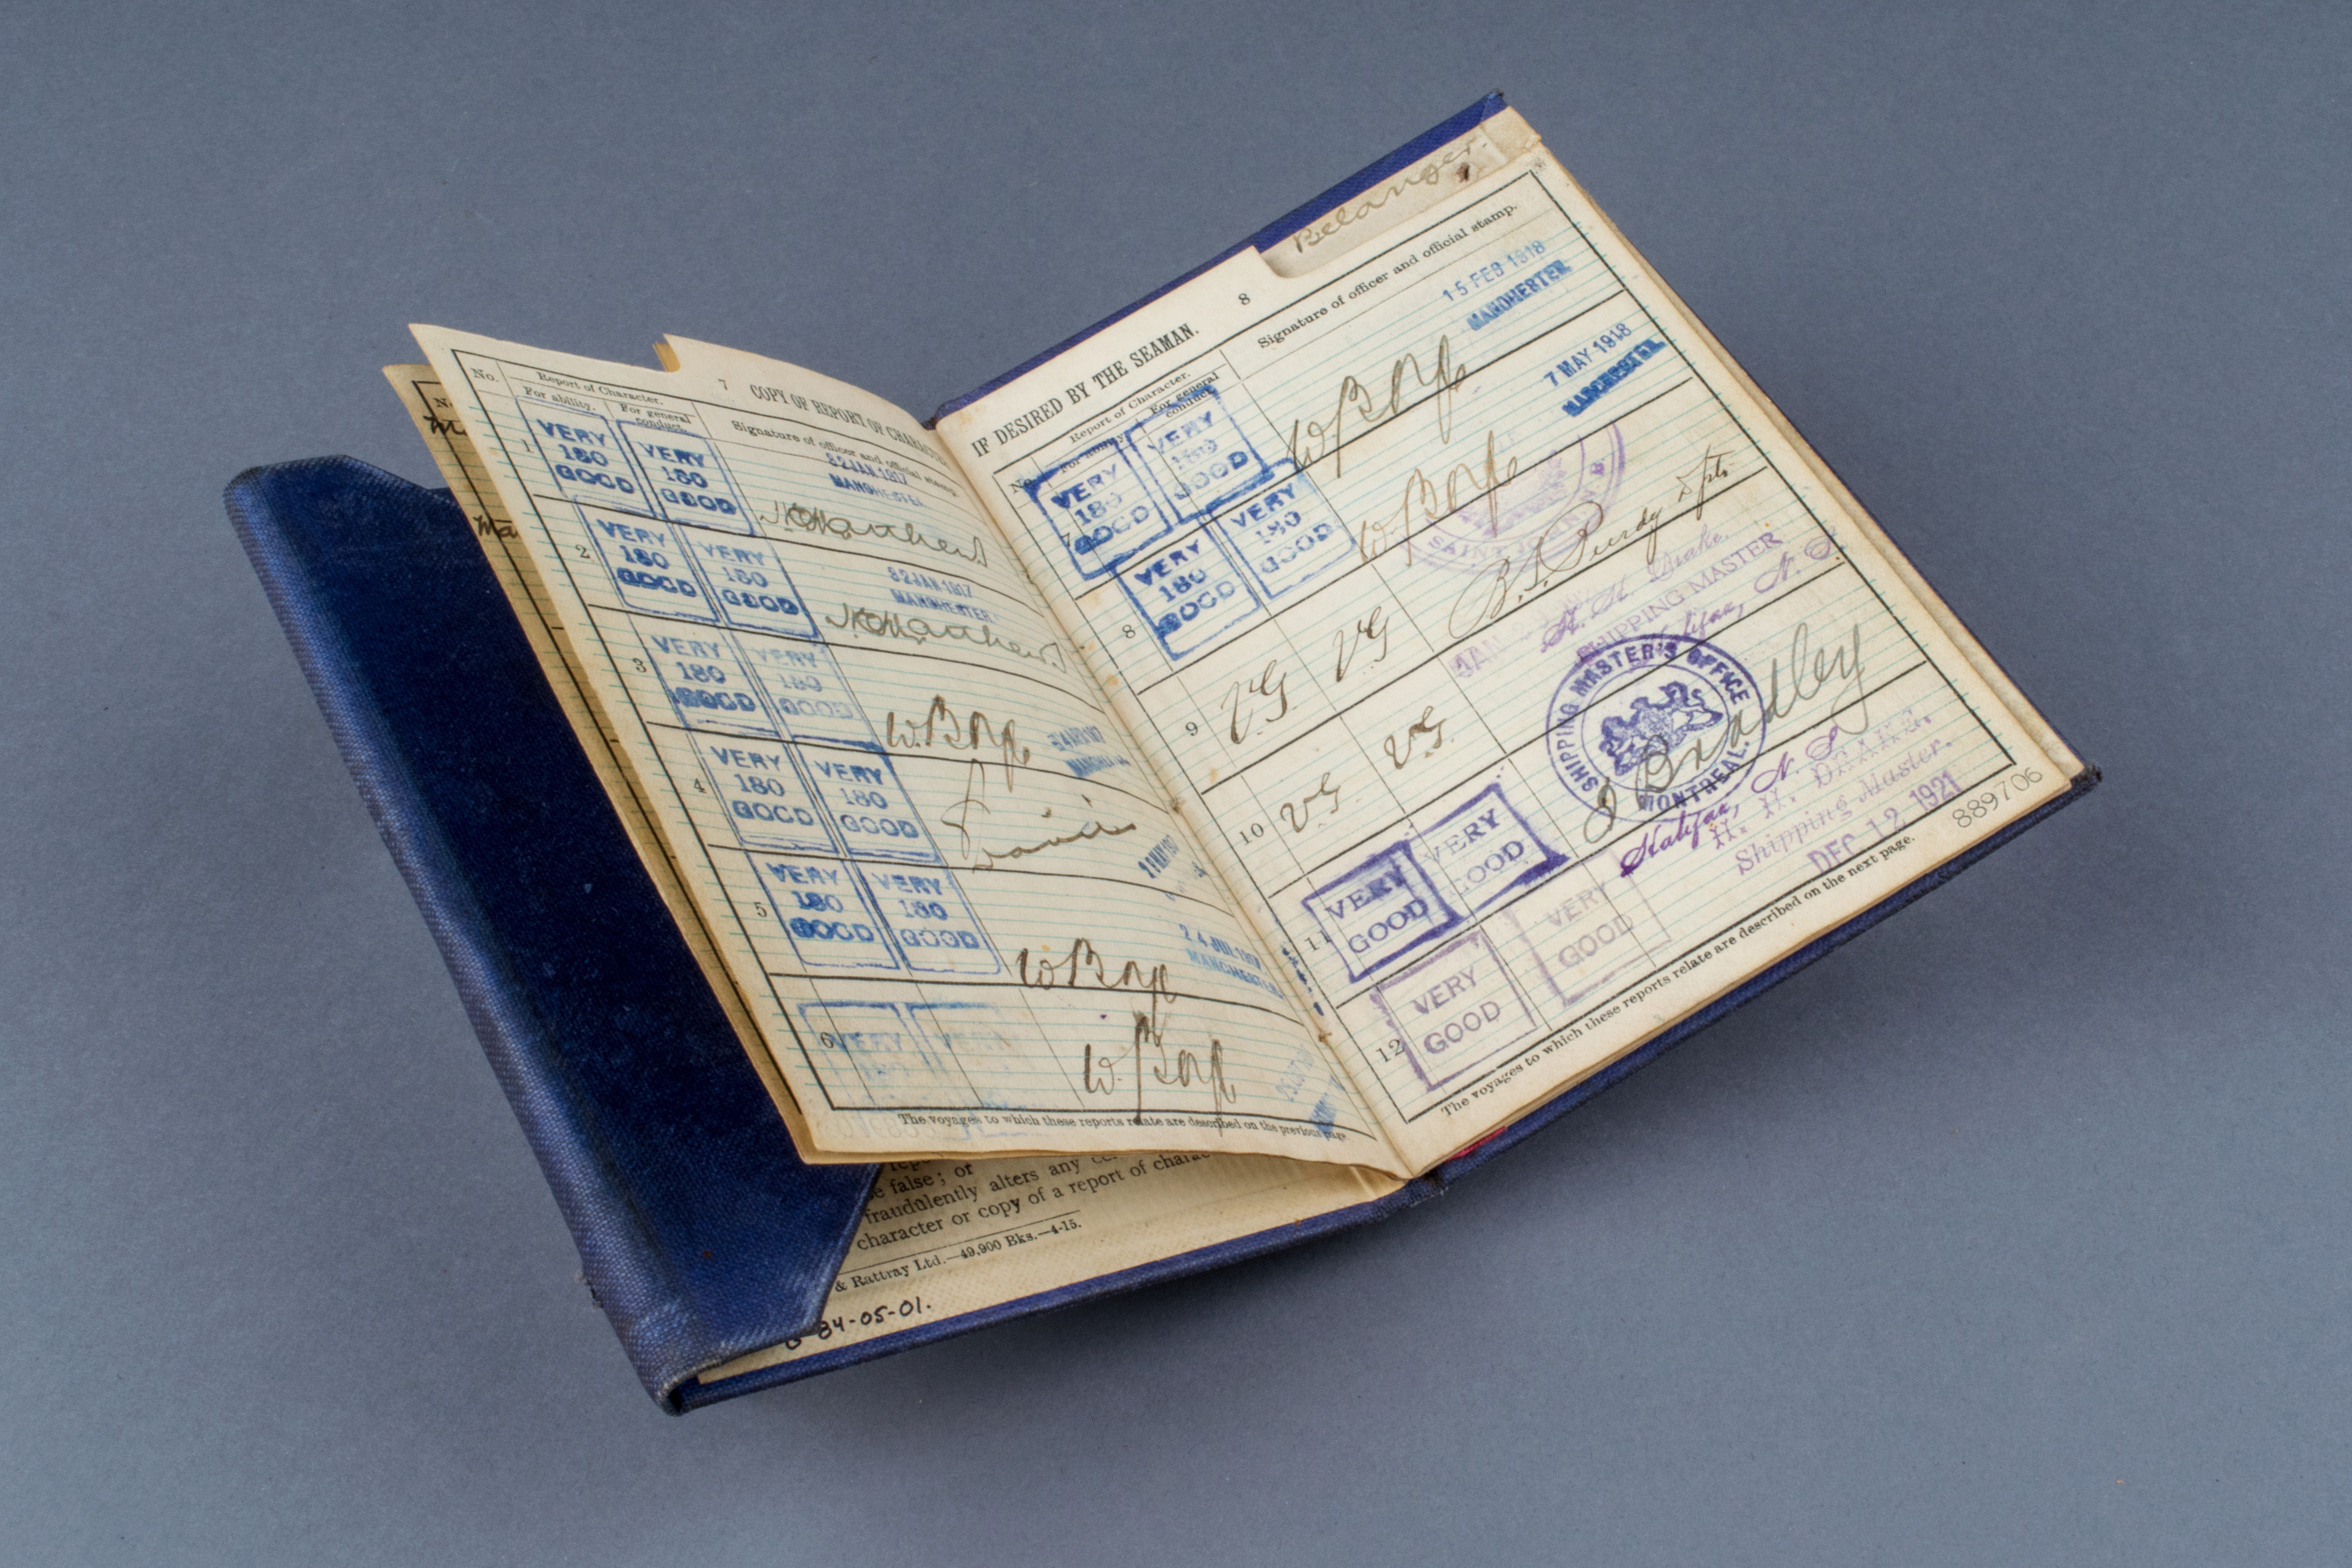 No.
Report of Character.
For ability.
For general conduct.
7
COPY OF REPORT OF CHARACTER
Signature of officer and official stamp.
1
VERY 180 GOOD
VERY 180 GOOD
MANCHESTER
2
VERY 180 GOOD
VERY 180 GOOD
MANCHESTER
3
VERY 180 GOOD
VERY 180 GOOD
4
VERY 180 GOOD
VERY 180 GOOD
5
VERY 180 GOOD
VERY 180 GOOD
MANCHESTER
6
VERY
VERY
The voyages to which these reports relate are described on the previous page
e false; or
fraudulently alters any
character or copy of a report of charac
& Rattray Ltd.—49,900 Bks.—4-15.
84-05-01.
Belanger.
8
IF DESIRED BY THE SEAMAN.
No.
Report of Character.
For ability
For general conduct.
Signature of officer and official stamp.
7
VERY 180 GOOD
VERY 180 GOOD
15 FEB 1918
MANCHESTER
8
VERY 180 GOOD
VERY 180 GOOD
7 MAY 1918
MANCHESTER
SAINT JOHN N.B.
9
VG
VG
B. S. Purdy
H. H. Drake.
SHIPPING MASTER
Halifax, N. S.
JAN
10
VG.
VG.
SHIPPING MASTER'S OFFICE
MONTREAL.
Bradley
11
VERY GOOD
VERY GOOD
Halifax, N. S.
H. H. DRAKE.
Shipping Master.
DEC 12 1921
12
VERY GOOD
VERY GOOD
The voyages to which these reports relate are described on the next page.
889706